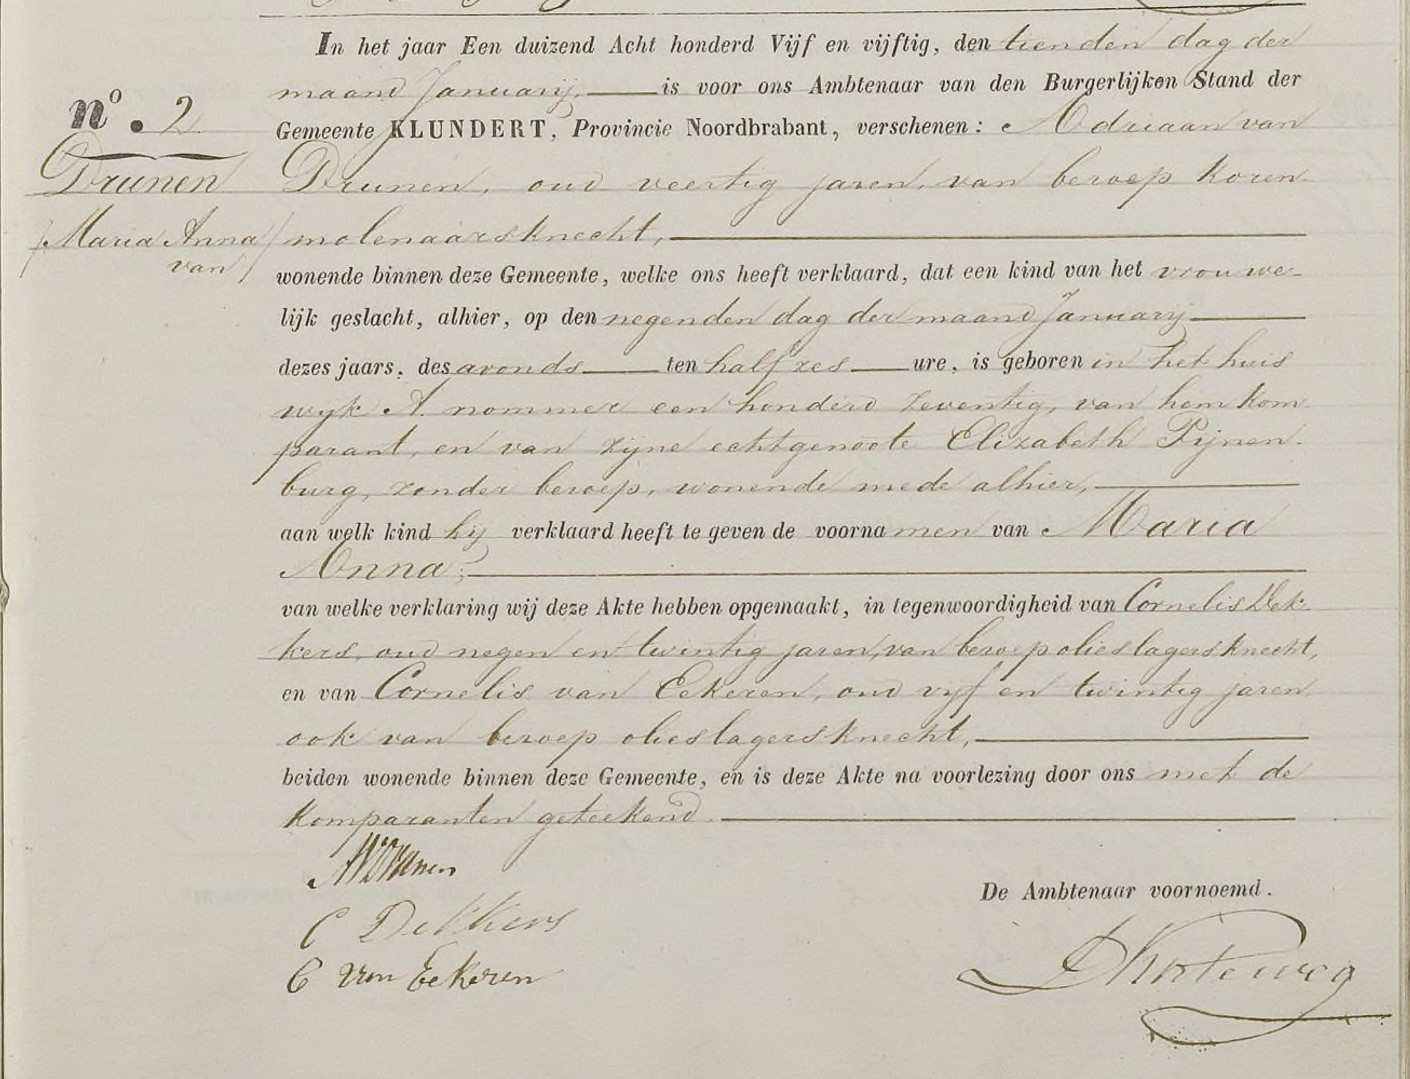 nº. 2
Drunen
/Maria Anna/
van/
In het jaar Een duizend Acht honderd Vijf en vijftig, den tienden dag der
maand Januarij, is voor ons Ambtenaar van den Burgerlijken Stand der
Gemeente KLUNDERT, Provincie Noordbrabant, verschenen: Adriaan van
Drunen, oud veertig jaren, van beroep koren-
molenaarsknecht,
wonende binnen deze Gemeente, welke ons heeft verklaard, dat een kind van het vrouwe-
lijk geslacht, alhier, op den negenden dag der maand Januarij
dezes jaars, des avonds ten half zes ure, is geboren in het huis
wyk A. nommer een honderd zeventig, van hem kom-
parant, en van zijne echtgenoote Elizabeth Pijnen-
burg, zonder beroep, wonende mede alhier,
aan welk kind hij verklaard heeft te geven de voornamen van Maria
Anna;
van welke verklaring wij deze Akte hebben opgemaakt, in tegenwoordigheid van Cornelis Dek-
kers, oud negen en twintig jaren, van beroep olieslagersknecht,
en van Cornelis van Eekeren, oud vyf en twintig jaren,
ook van beroep olieslagersknecht,
beiden wonende binnen deze Gemeente, en is deze Akte na voorlezing door ons met de
komparanten geteekend.
AVDrunen
C Dekkers
C van Eekeren
De Ambtenaar voornoemd.
Korteweg